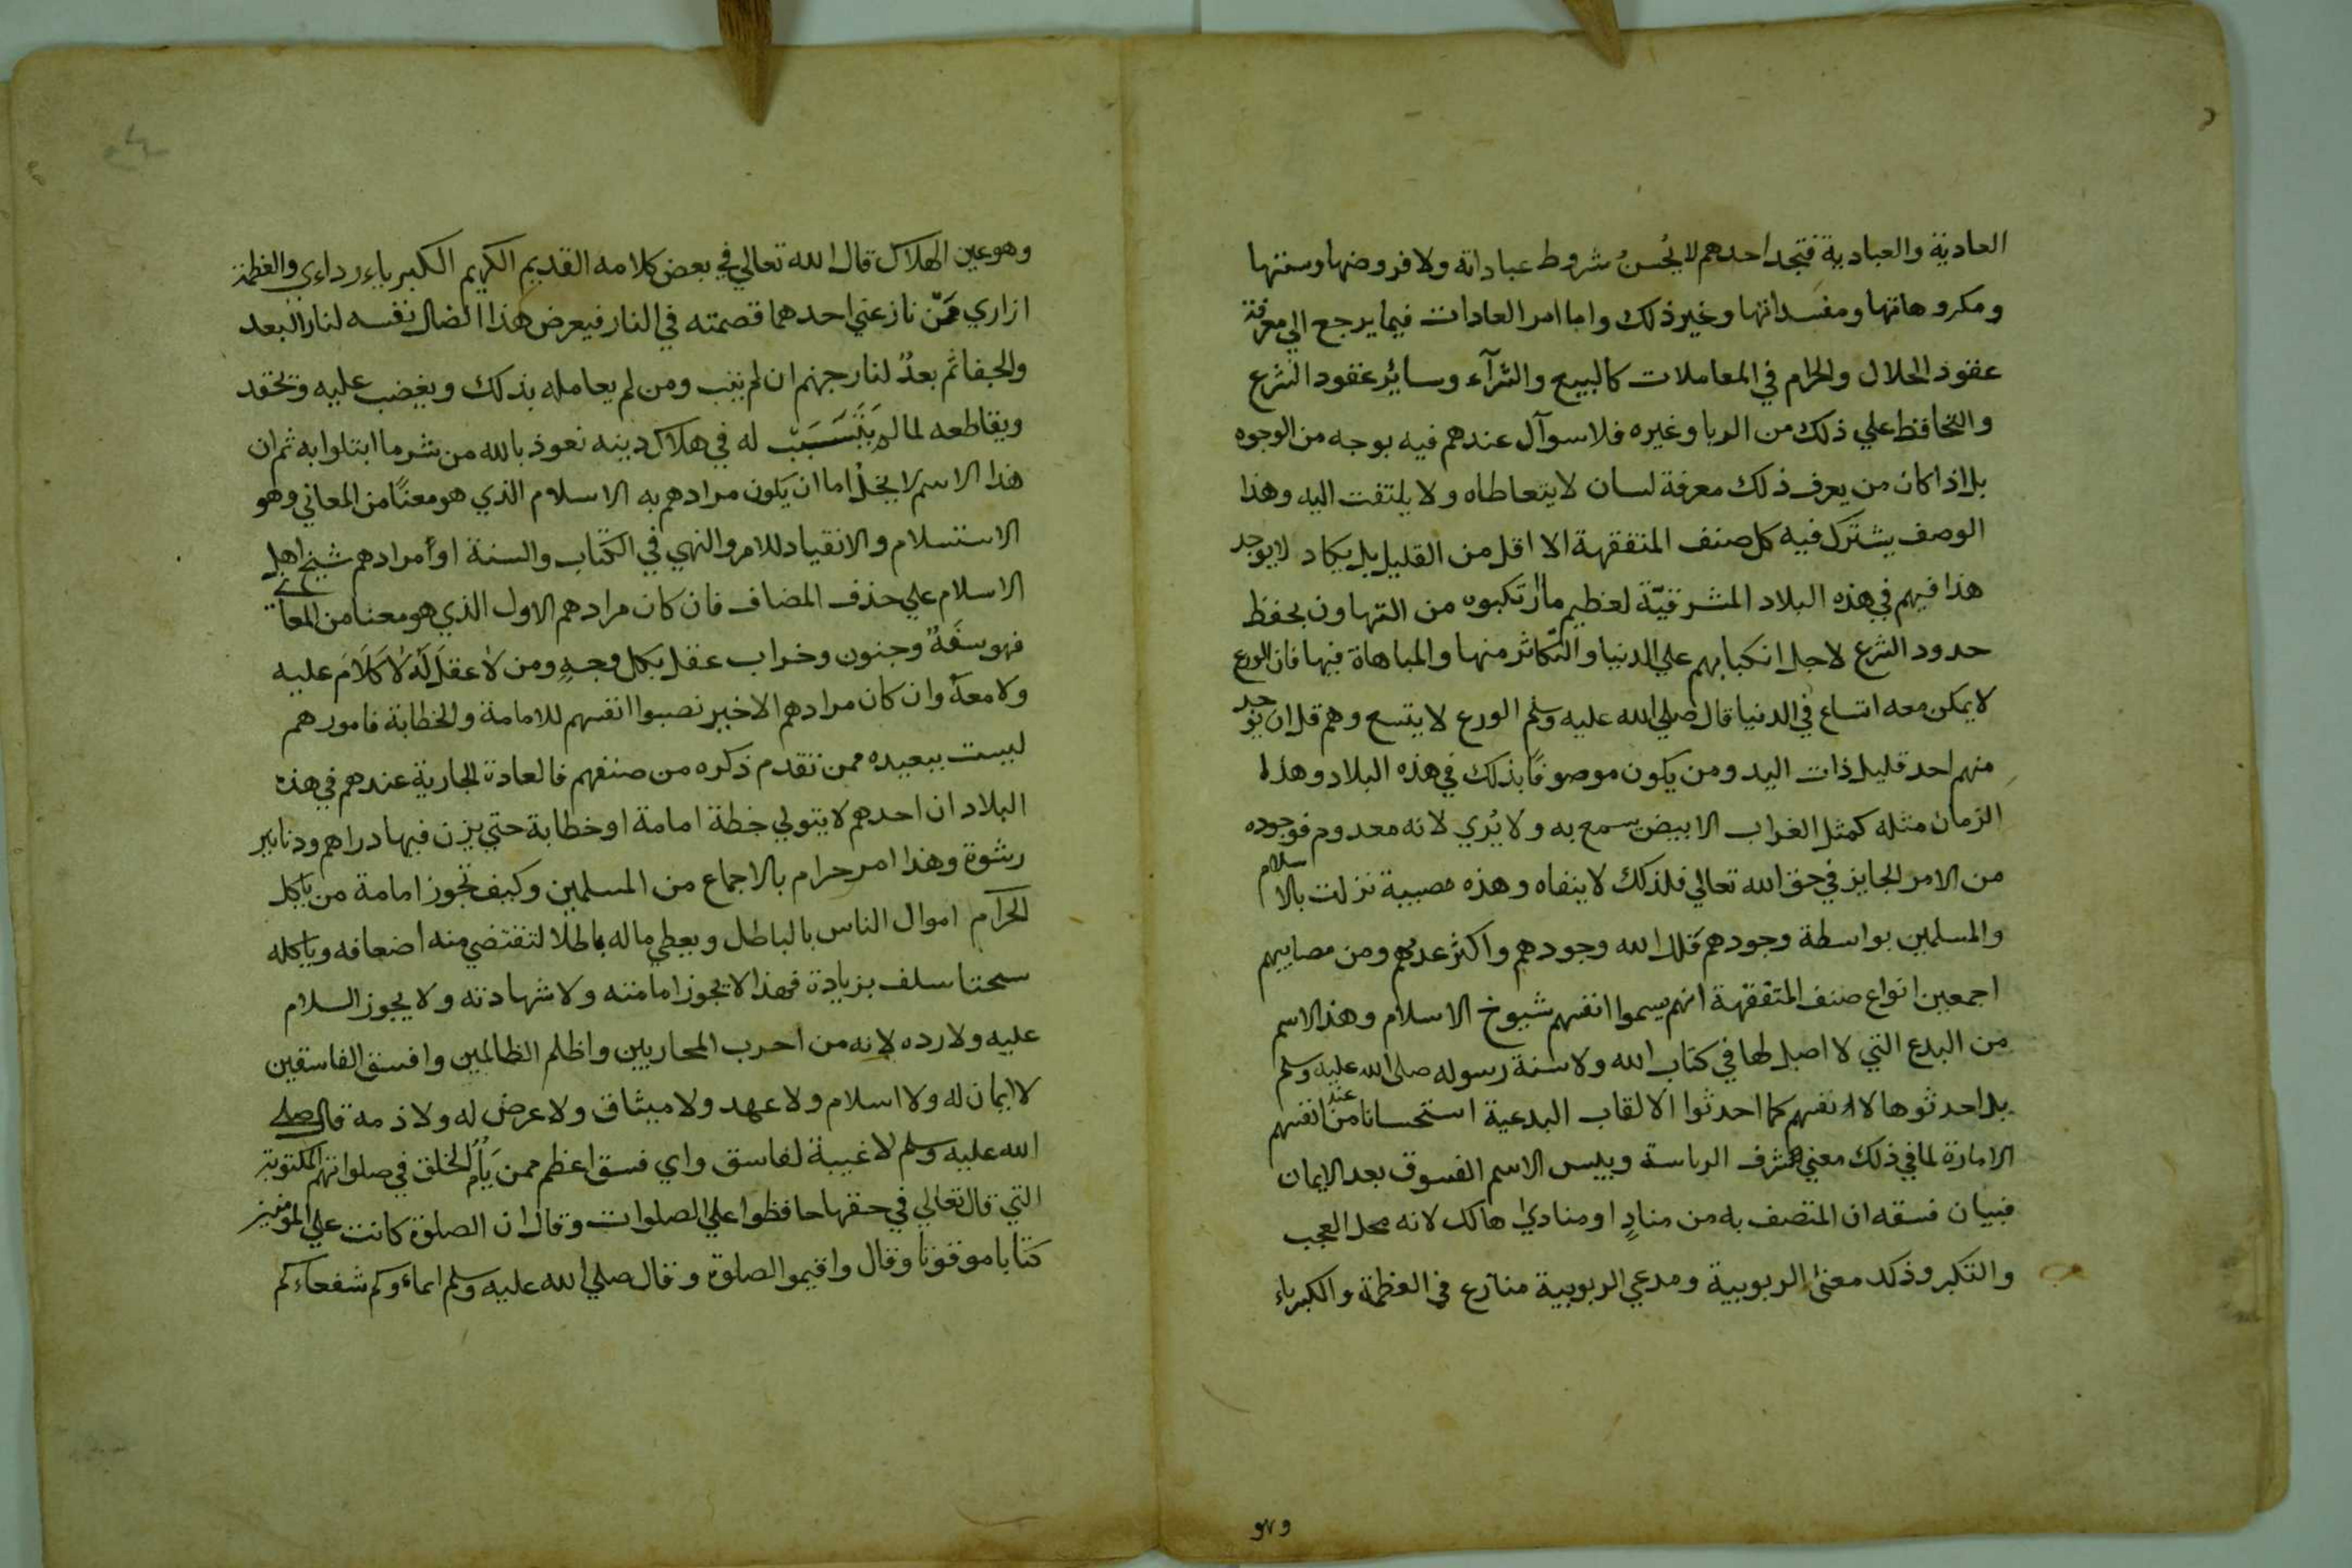 العادية والعبادية فتجد احدهم لا يُحْسنُ شروط عباداتة ولا فروضها وسننها
ومكروهاتها ومفسداتها وغير ذلك واما امر العادات فيما يرجع الي معرفة
عقود الحلال والحرام في المعاملات كالبيع والشرآء وسائر عقود الشرع
والتحافظ علي ذلك من الربا وغيره فلا سوآل عندهم فيه بوجه من الوجوه
بل اذا كان من يعرف ذلك معرفة لسان لا يتعاطاه ولا يلتفت اليه وهذا
الوصف يشترك فيه كل صنف المتفقهة الا اقل من القليل بل يكاد لا يوجد
هذا فيهم في هذه البلاد المشرقيّة لعظيم ما ارتكبوه من التهاون بحفظ
حدود الشرع لاجل انكبابهم علي الدنيا والتكاثر منها والمباهاة فيها فان الورع
لا يمكن معه اتساع في الدنيا قال صلي الله عليه وسلم الورع لا يتسع وهم قل ان يوجد
منهم احد قليل ذات اليد ومن يكون موصوفًا بذلك في هذه البلاد وهذا
الزمان مثله كمثل الغراب الابيض يسمع به ولا يُري لانه معدوم فوجوده
من الامر الجايز في حق الله تعالي فلذلك لا ينفاه وهذه مصيبة نزلت بالاسلام
والمسلمين بواسطة وجودهم قلل الله وجودهم واكثر عدمهم ومن مصايبهم
اجمعين انواع صنف المتفقهة انهم يسموا انفسهم شيوخ الاسلام وهذا الاسم
من البدع التي لا اصل لها في كتاب الله ولا سنة رسوله صلي الله عليه وسلم
بل احدثوها لانفسهم كما احدثوا الالقاب البدعية استحسانا من عند انفسهم
الامارة لما في ذلك معني شرف الرياسة وبيس الاسم الفسوق بعد الايمان
فبيان فسقه ان المتصف به من منادٍ او منادي هالك لانه محل العجب
والتكبر وذلك معنى الربوبية ومدعي الربوبية منازع في العظمة والكبرياء
وهو
وهو عين الهلاك قال الله تعالي في بعض كلامه القديم الكريم الكبرياء رداءي والعظمة
ازاري فمن نازعني احدهما قصمته في النار فيعرض هذا الضال نفسه لنار البعد
والجفا ثم بعدُ لنار جهنم ان لم يتب ومن لم يعامله بذلك ويغضب عليه ويحقد
ويقاطعه لما لم يَتَسَبَبْ له في هلاك دينه نعوذ بالله من شر ما ابتلوا به ثم ان
هذا الاسم لا يخلُ اما ان يكون مرادهم به الاسلام الذي هو معنًا من المعاني وهو
الاستسلام والانقياد للامر والنهي في الكتاب والسنة او مرادهم شيخ اهل
الاسلام علي حذف المضاف فان كان مرادهم الاول الذي هو معنا من المعاني
فهو سفَهٌ وجنون وخراب عقل بكل وجهٍ ومن لا عقلَ لَهُ لا كَلَامَ عليه
ولا معهُ وان كان مرادهم الاخير نصبوا انفسهم للامامة والخطابة فامورهم
ليست ببعيده ممن تقدم ذكره من صنفهم فالعادة الجارية عندهم في هذه
البلاد ان احدهم لا يتولي خطة امامة او خطابة حتي يزن فيها دراهم ودنانير
رشوة وهذا امر حرام بالاجماع من المسلمين وكيف تجوز امامة من ياكل
الحرام اموال الناس بالباطل ويعطي ماله باطلا لتقتضي منه اضعافه وياكله
سحتا سلف بزيادة فهذا لا يجوز امامته ولا شهادته ولا يجوز السلام
عليه ولا رده لانه من احرب المحاربين واظلم الظالمين وافسق الفاسقين
لا ايمان له ولا اسلام ولا عهد ولا ميثاق ولا عرض له ولا ذمة قال صلي
الله عليه وسلم لا غيبة لفاسق واي فسق اعظم ممن يَأُم الخلق في صلواتهم المكتوبة
التي قال تعالي في حقها حافظوا علي الصلوات وقال ان الصلوة كانت علي المومنين
كتابا موقوتا وقال واقيموا الصلوة وقال صلي الله عليه وسلم ايماؤكم شفعاءكم